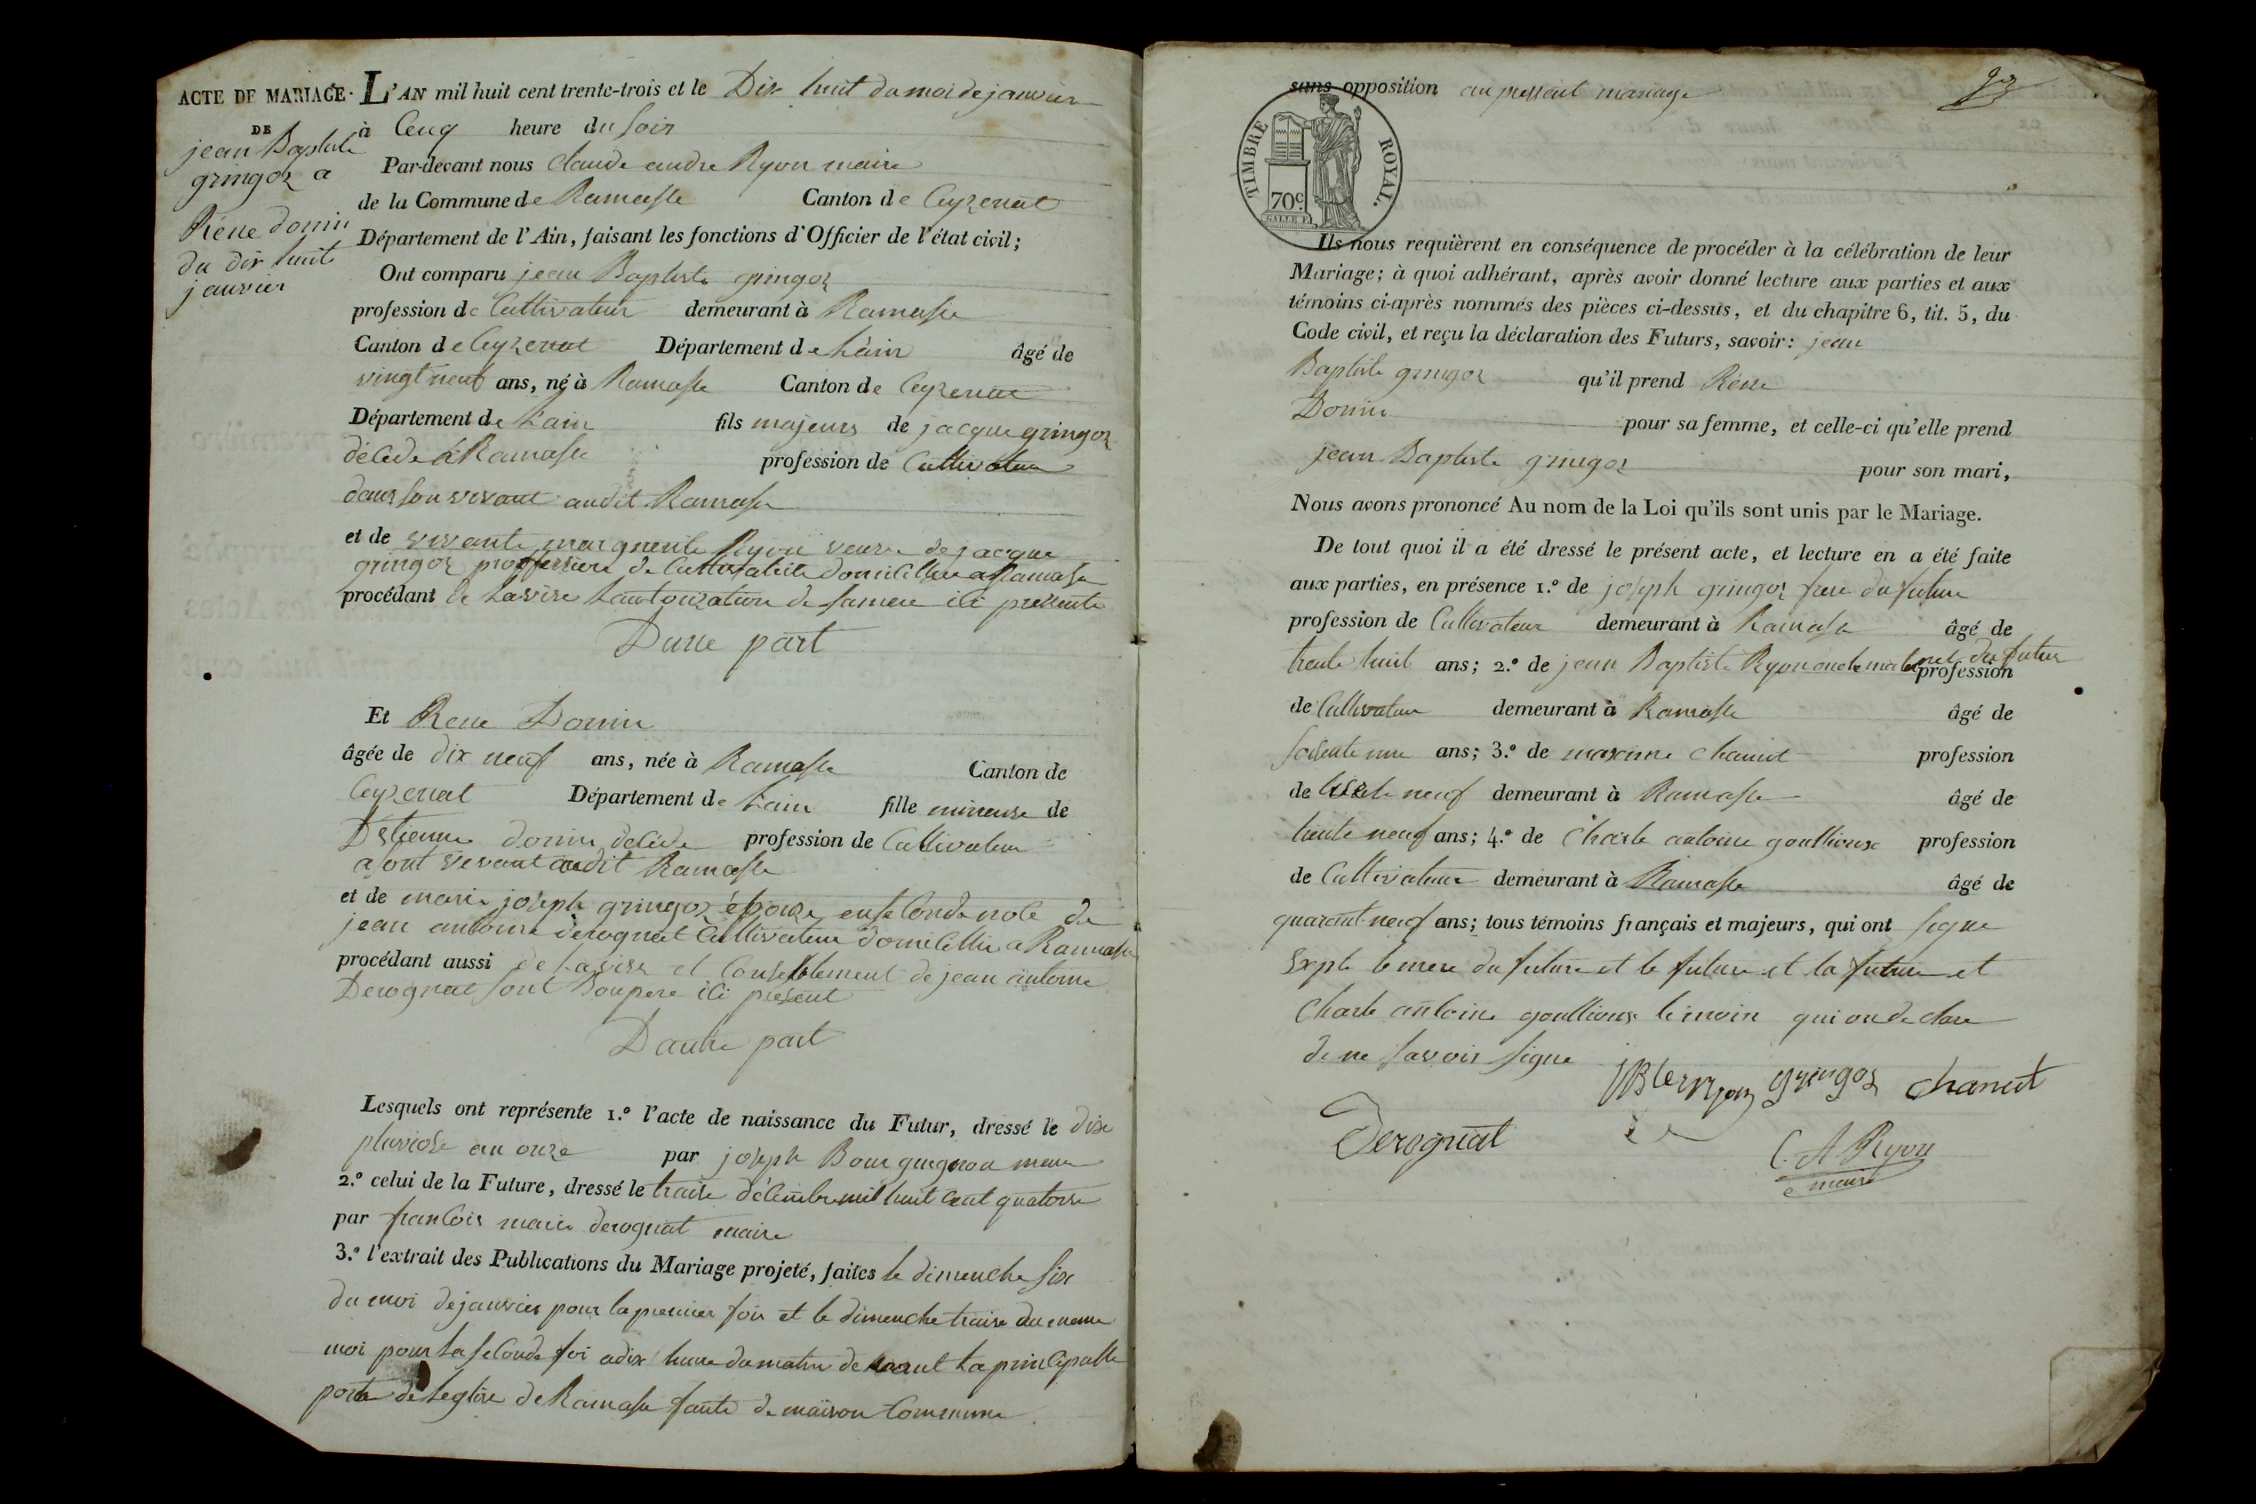 ACTE DE MARIAGE.
DE
jean Baptiste
gringoz a
Réne donin
du dix huit
janvier
L'AN mil huit cent trente-trois et le Dix huit du moi de janvier
à Cenq heure du soir
Par-devant nous claude andre Ryon maire
de la Commune de Ramasse Canton de Ceyzeriat
Département de l'Ain, faisant les fonctions d'Officier de l'état civil;
Ont comparu jean Baptiste gringoz
profession de Cultivateur demeurant à Ramasse
Canton de Ceyzeriat Département de Lain âgé de
vingt neuf ans, né à Ramasse Canton de Ceyzeriat
Département de Lain fils majeurs de jacque gringoz
décédé à Ramasse profession de Cultivateur
dans son vivant audit Ramasse
et de vivante marguerite Ryon veuve de jacque
gringoz proffession de Cultivatrice domicillié a Ramasse
procédant de Lavire Lautorzation de sa mere ici presente
Dune part
Et Rene Donin
âgée de dix neuf ans, née à Ramasse Canton de
Ceyzeriat Département de Lain fille mineure de
Détienne donin décéde profession de Cultivateur
a sont vivant audit Ramasse
et de marie joseph gringoz épouze en seconde noce de
jean antoine derognat Cultivateur domicillié a Ramasse
procédant aussi de Lavire et Consentement de jean antoine
Derognat sont Boupere ici présent
Dautre part
Lesquels ont représente 1.º l'acte de naissance du Futur, dressé le dix
pluviose an onze par joseph Bourguignon maire
2.º celui de la Future, dressé le traise décembre mil huit cent quatorse
par francois marie derognat maire
3.º l'extrait des Publications du Mariage projeté, faites le dimenche six
du moi de janvier pour la premier fois et le dimenche traise du meme
moi pour La seconde foi a dix heure du matin devant La principalle
porte de Leglise de Ramasse faute de maison Commune
sans opposition au present mariage
TIMBRE ROYAL.
70c.
Ils nous requièrent en conséquence de procéder à la célébration de leur
Mariage; à quoi adhérant, après avoir donné lecture aux parties et aux
témoins ci-après nommés des pièces ci-dessus, et du chapitre 6, tit. 5, du
Code civil, et reçu la déclaration des Futurs, savoir: jean
Baptiste gringoz qu'il prend Réne
Donin pour sa femme, et celle-ci qu'elle prend
jean Baptiste gringoz pour son mari,
Nous avons prononcé Au nom de la Loi qu'ils sont unis par le Mariage.
De tout quoi il a été dressé le présent acte, et lecture en a été faite
aux parties, en présence 1.º de joseph gringoz frere du future
profession de Cultivateur demeurant à Ramasse âgé de
trente huit ans; 2.º de jean Baptiste Ryon oncle maternel du futur profession
de Cultivateur demeurant à Ramasse âgé de
soisente une ans; 3.º de maxime chanut profession
de neuf demeurant à Ramasse âgé de
trente neuf ans; 4.º de Charle antoine goullioux profession
de Cultivateur demeurant à Ramasse âgé de
quarent neuf ans; tous témoins français et majeurs, qui ont signe
Expte le mere du future et le future et la future et
Charle antoine goullioux temoin qui on declare
de ne savoir signe
gringoz chanut
Derognat
C. A Ryon
maire